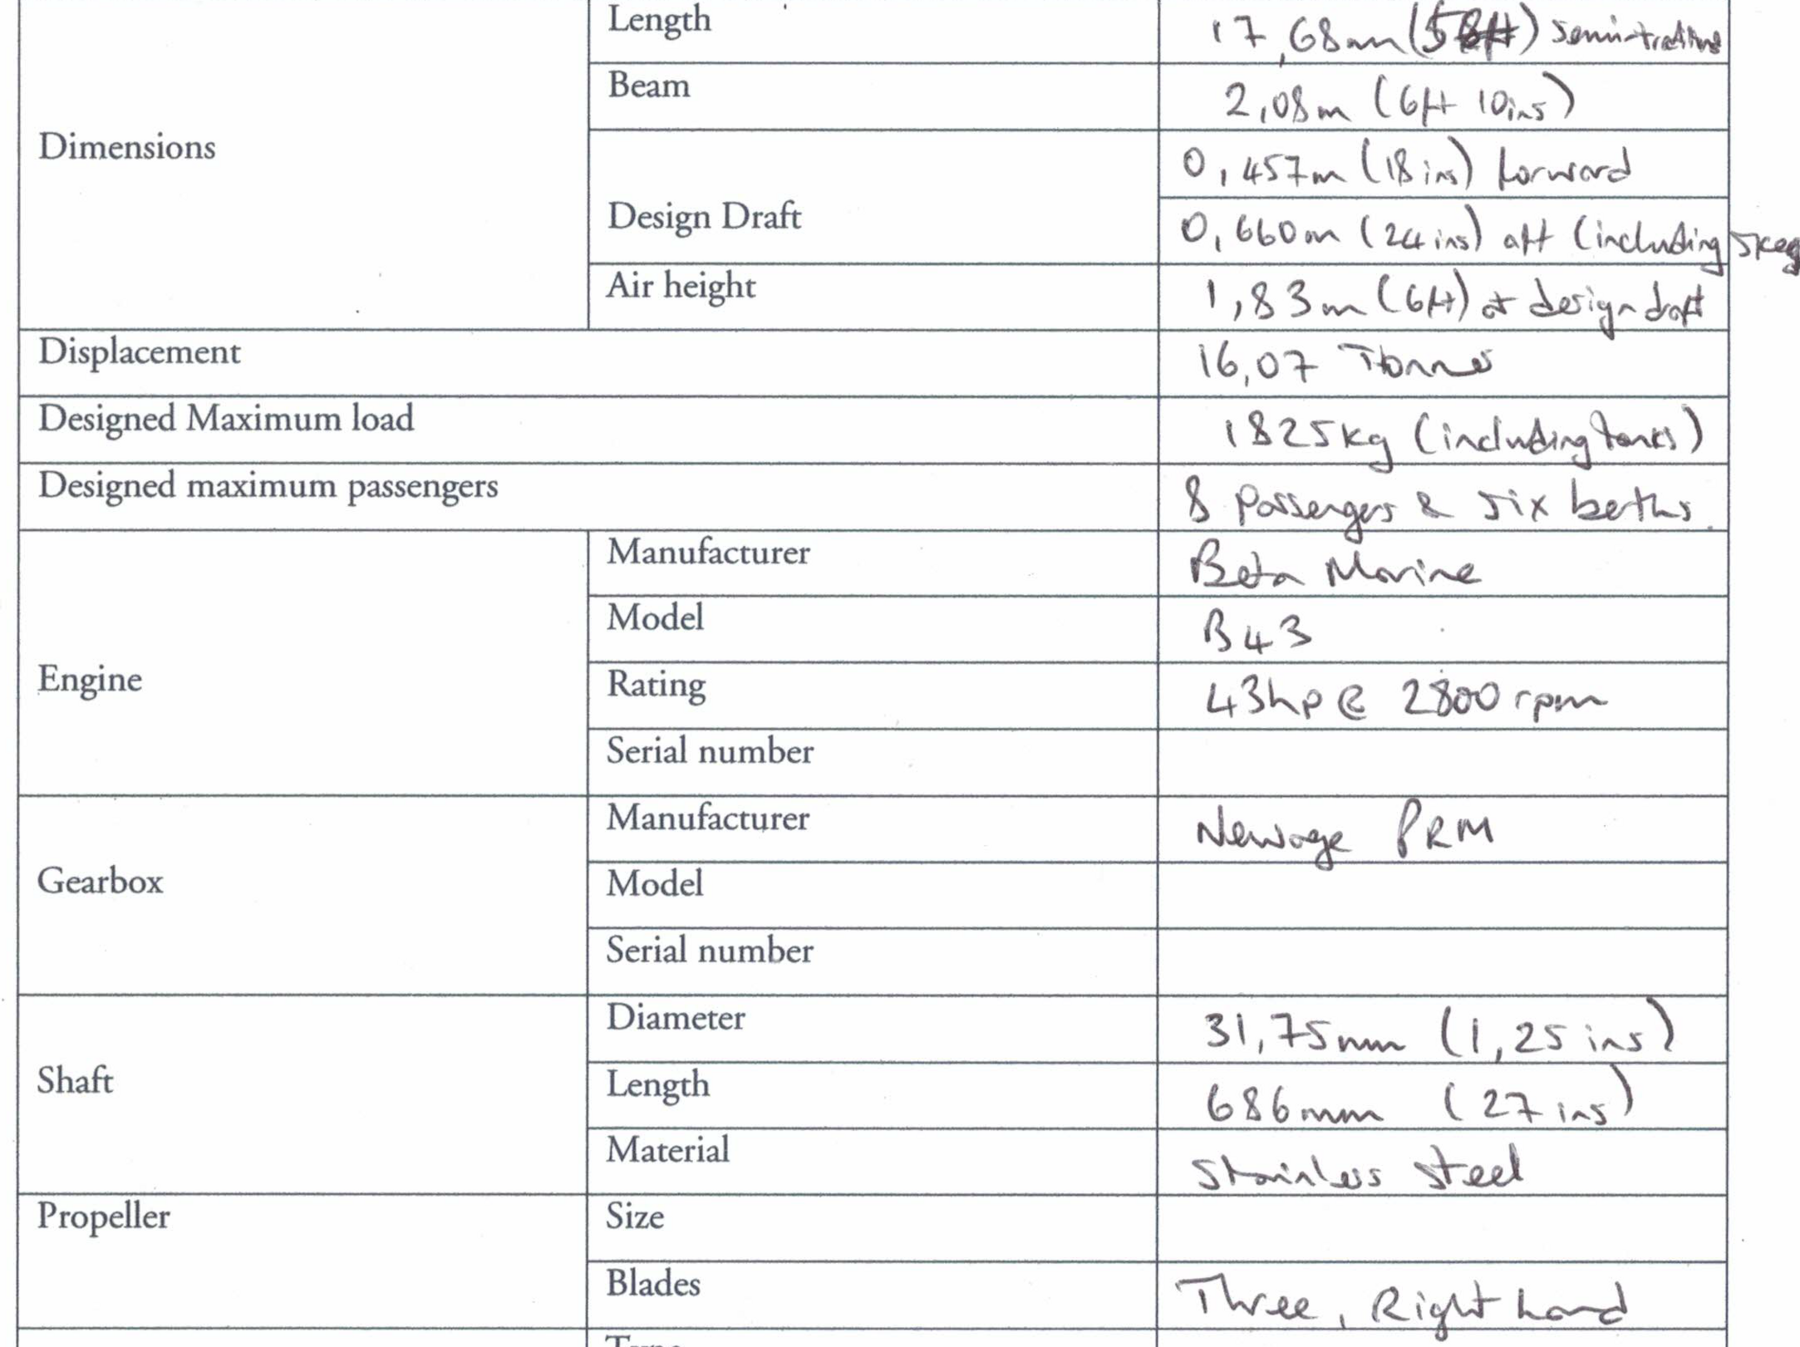 Length 17,68m (58ft) semi-trad
Beam 2,08m (6ft 10ins)
Dimensions
0,457m (18ins) forward
Design Draft 0,660m (24ins) aft (including skeg
Air height 1,83m (6ft) at design draft
Displacement 16,07 Tonnes
Designed Maximum load 1825kg (including tanks)
Designed maximum passengers 8 Passengers & six berths.
Manufacturer Beta Marine
Model B43
Engine
Rating 43hp @ 2800 rpm
Serial number
Manufacturer Newage PRM
Gearbox
Model
Serial number
Diameter 31,75mm (1,25 ins)
Shaft
Length 686mm (27 ins)
Material Stainless steel
Propeller Size
Blades Three, Right hand